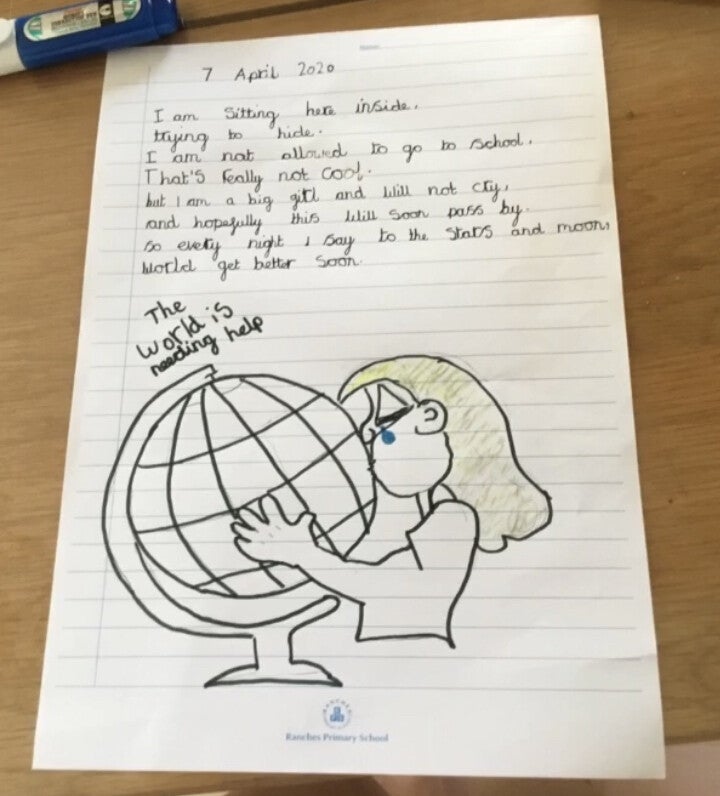 7 April 2020
I am sitting here inside,
trying to hide.
I am not allowed to go to school,
That's really not cool.
but I am a big girl and will not cry,
and hopefully this will soon pass by.
so every night I say to the stars and moon,
World get better soon.
The
world is
needing help
RANCHES
Ranches Primary School